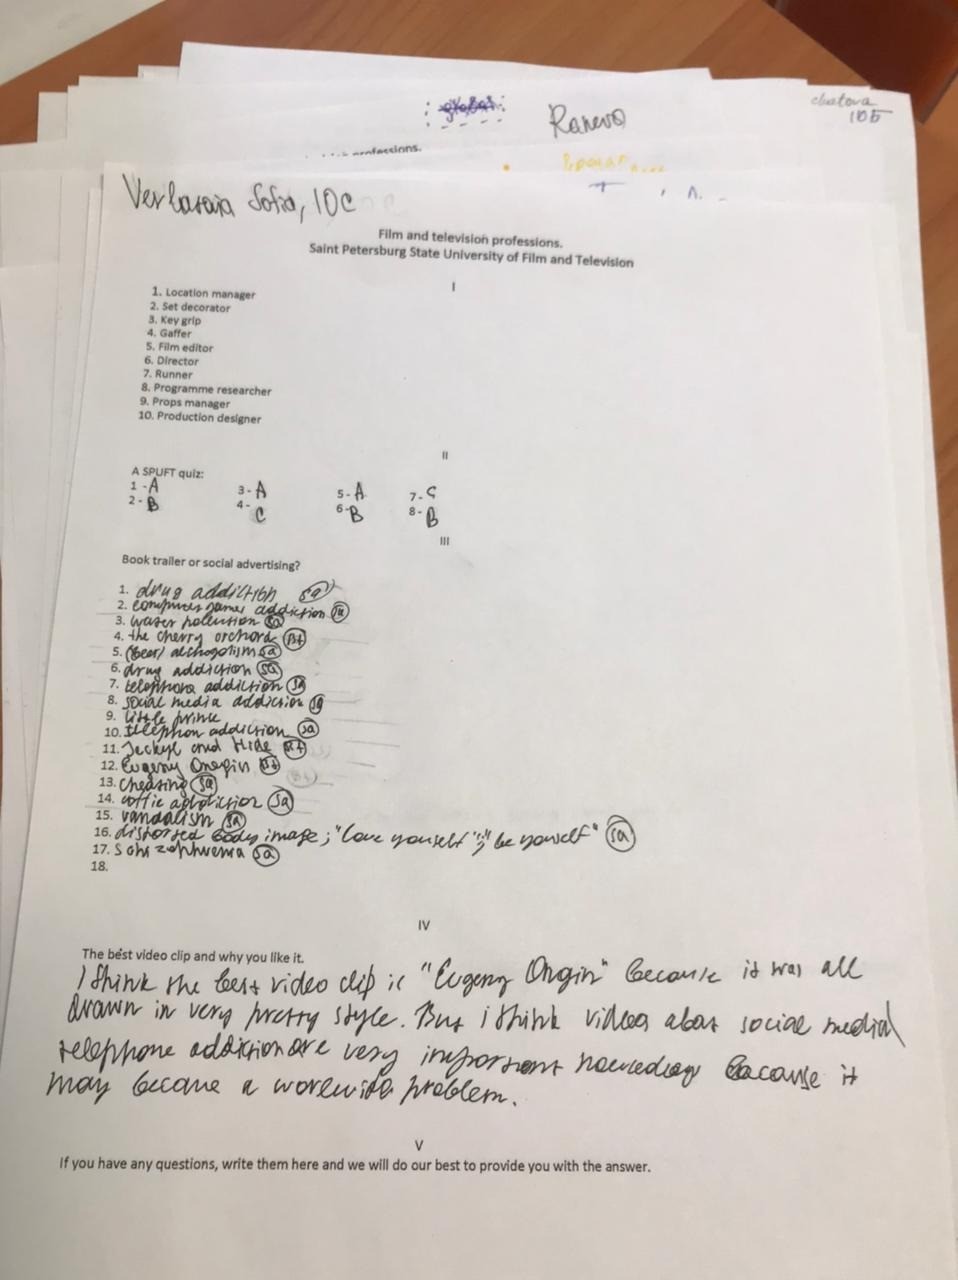 chatova
10Б
global
Ranevs
professions.
Verbavaia Sofia, 10C
Film and television professions.
Saint Petersburg State University of Film and Television
I
1. Location manager
2. Set decorator
3. Key grip
4. Gaffer
5. Film editor
6. Director
7. Runner
8. Programme researcher
9. Props manager
10. Production designer
II
A SPUFT quiz:
1 - A 3 - A 5 - A 7 - C
2 - B 4 - C 6 - B 8 - B
III
Book trailer or social advertising?
1. drug addiction sa
2. computer games addiction sa
3. water polention sa
4. the cherry orchard Bt
5. (beer) alchogolism sa
6. drug addiction sa
7. telephona addiction sa
8. social media addiction sa
9. little prince
10. telephon addiction sa
11. Jeckyl and Hide Bt
12. Eugeny Onegin Bt
13. cheasing sa
14. coffie addiction sa
15. vandalism sa
16. distorsed body image; "love yourself"; "be yourself" sa
17. Sohszophrenia sa
18.
IV
The best video clip and why you like it.
I think the best video clip is "Eugeny Ongin" because it was all
drawn in very pretty style. But i think videos abat social medial
telephone addiction are very important noweday bacause it
may became a worewide problem.
V
If you have any questions, write them here and we will do our best to provide you with the answer.